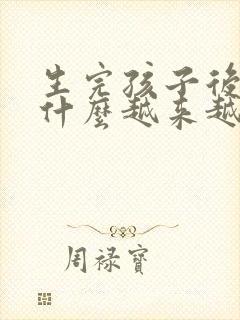 生完孩子後
什麼越来越
周禄寶